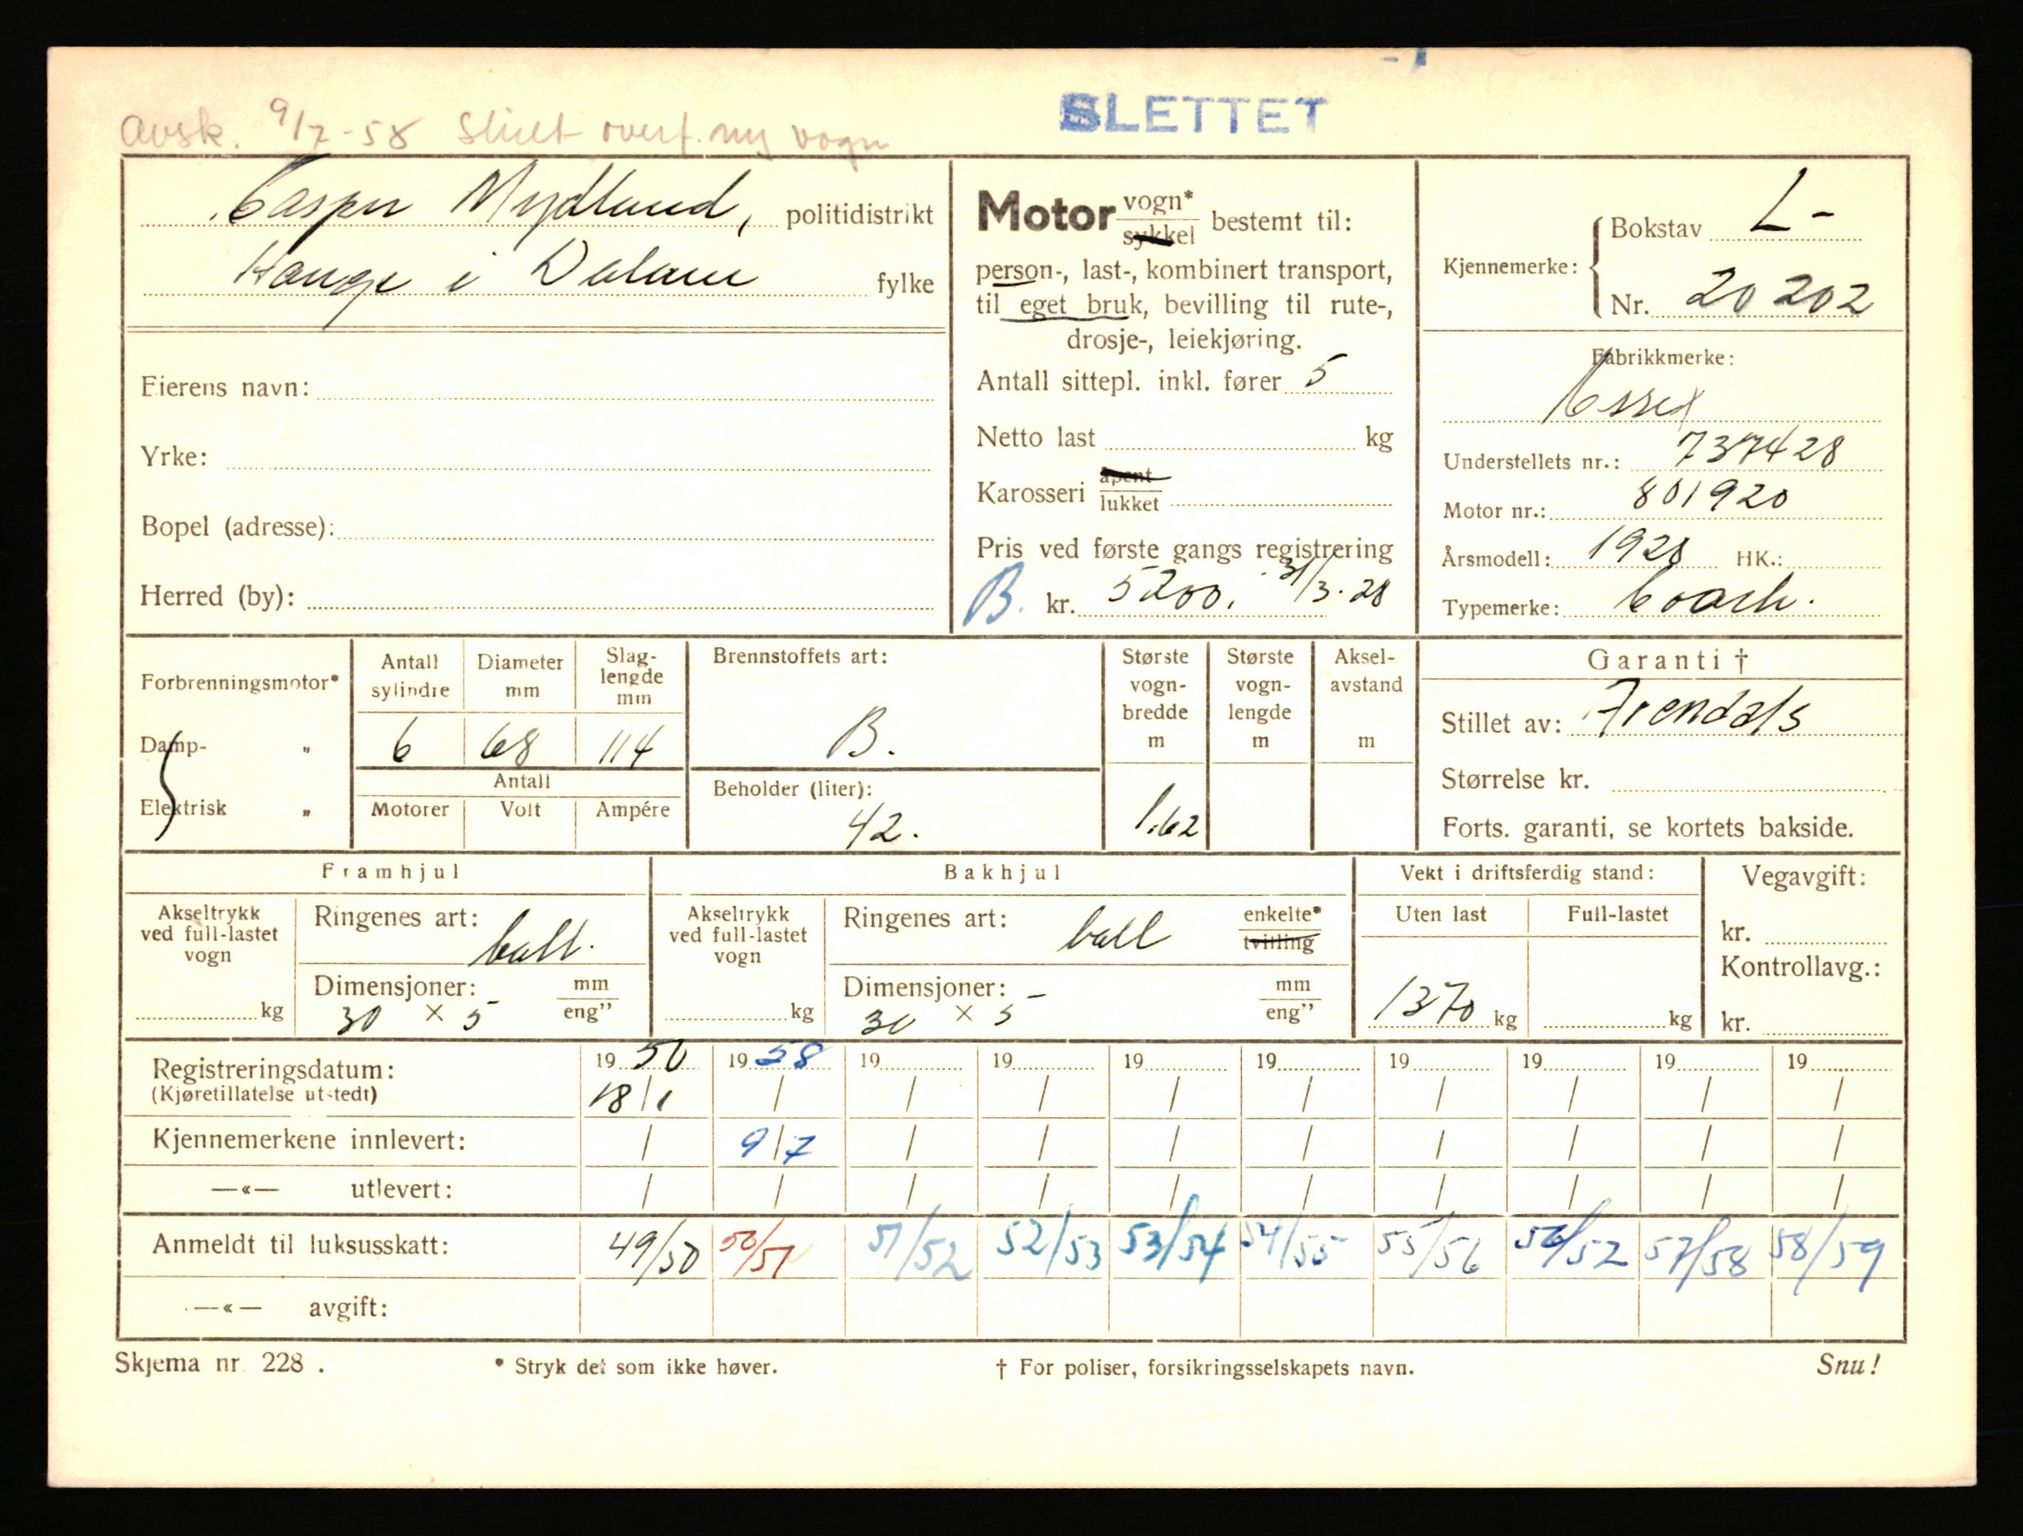 SLETTET
Avsk. 9/7-58 Skilt overf. ny vogn
Casper Mydland, politidistrikt
Hauge i Dalane fylke
Eierens navn:
Yrke:
Bopel (adresse):
Herred (by):
Motor vogn* sykkel bestemt til:
person-, last-, kombinert transport,
til eget bruk, bevilling til rute-,
drosje-, leiekjøring.
Antall sittepl. inkl. fører 5
Netto last kg
Karosseri åpent lukket
Pris ved første gangs registrering
B. kr. 5200, 31/3-28
Kjennemerke: Bokstav L-
Nr. 20202
Fabrikkmerke:
Essex
Understellets nr.: 737428
Motor nr.: 801920
Årsmodell: 1928 HK.:
Typemerke: Coach.
Forbrenningsmotor*
Damp- "
Elektrisk "
Antall sylindre
Diameter mm
Slaglengde mm
6 68 114
Antall
Motorer Volt Ampére
Brennstoffets art:
B.
Beholder (liter):
42.
Største vognbredde m
1.62
Største vognlengde m
Akselavstand m
Garanti †
Stillet av: Arendals
Størrelse kr.
Forts. garanti, se kortets bakside.
Framhjul
Akseltrykk ved full-lastet vogn
kg
Ringenes art: ball.
Dimensjoner: mm eng"
30 × 5
Bakhjul
Akseltrykk ved full-lastet vogn
kg
Ringenes art: ball enkelte* tvilling
Dimensjoner: mm eng"
30 × 5
Vekt i driftsferdig stand:
Uten last Full-lastet
1370 kg kg
Vegavgift:
kr.
Kontrollavg.:
kr.
Registreringsdatum: 1950 1958 19 19 19 19 19 19 19 19
(Kjøretillatelse utstedt) 18/1 / / / / / / / / /
Kjennemerkene innlevert: / 9/7 / / / / / / / /
—«— utlevert: / / / / / / / / / /
Anmeldt til luksusskatt: 49/50 50/51 51/52 52/53 53/54 54/55 55/56 56/57 57/58 58/59
—«— avgift:
Skjema nr. 228.
* Stryk det som ikke høver.
† For poliser, forsikringsselskapets navn.
Snu!